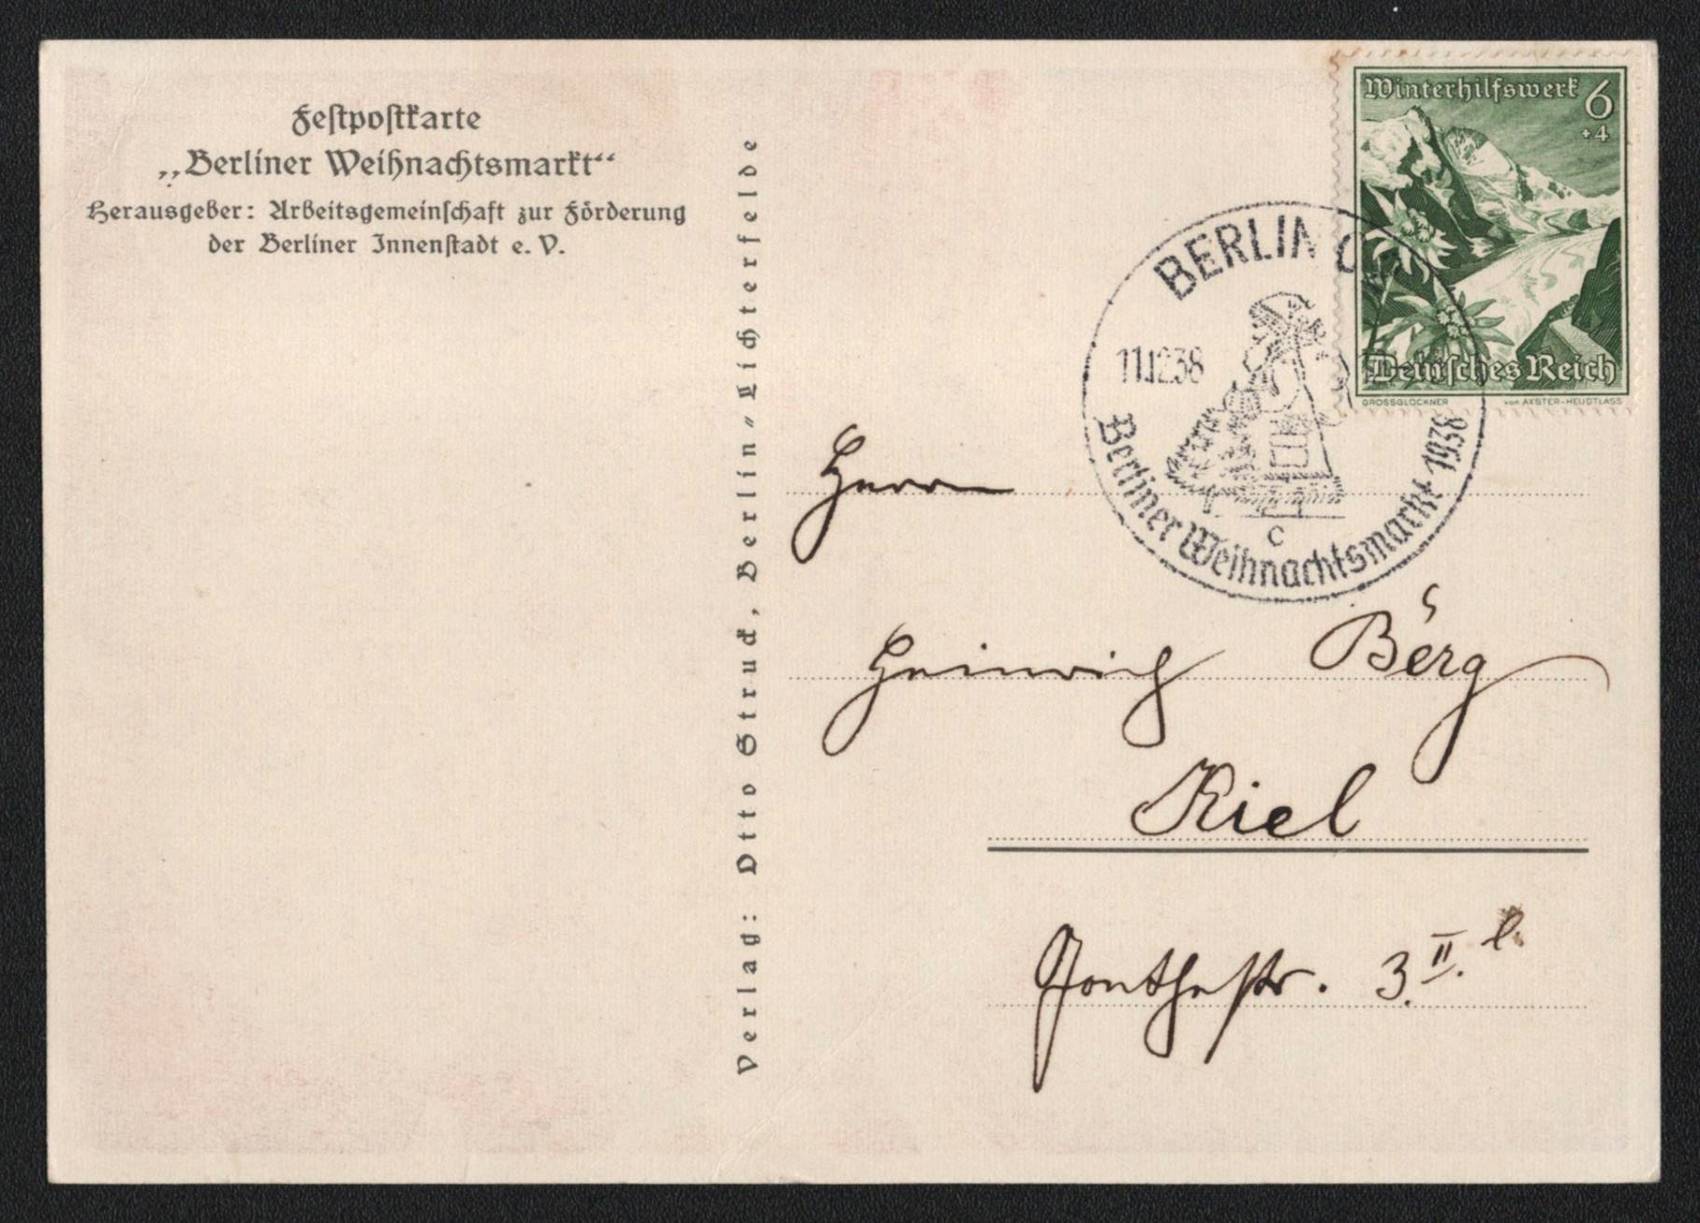 Festpostkarte
„Berliner Weihnachtsmarkt“
Herausgeber: Arbeitsgemeinschaft zur Förderung
der Berliner Innenstadt e. V.
Verlag: Otto Struck, Berlin-Lichterfelde
Winterhilfswerk 6
+4
Deutsches Reich
GROSSGLOCKNER von AXSTER-HEUDTLASS
BERLIN C
11.12.38
c
Berliner Weihnachtsmarkt 1938
Herrn
Heinrich Berg
Kiel
3. II. l.